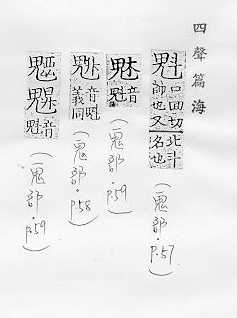 四聲篇海
魁 口回切 師也又 北斗 名也 (一鬼部·P.57)
音魁 (一鬼部·P.59)
音魁 義同 (一鬼部·P.58)
音魁 (一鬼部·P.59)